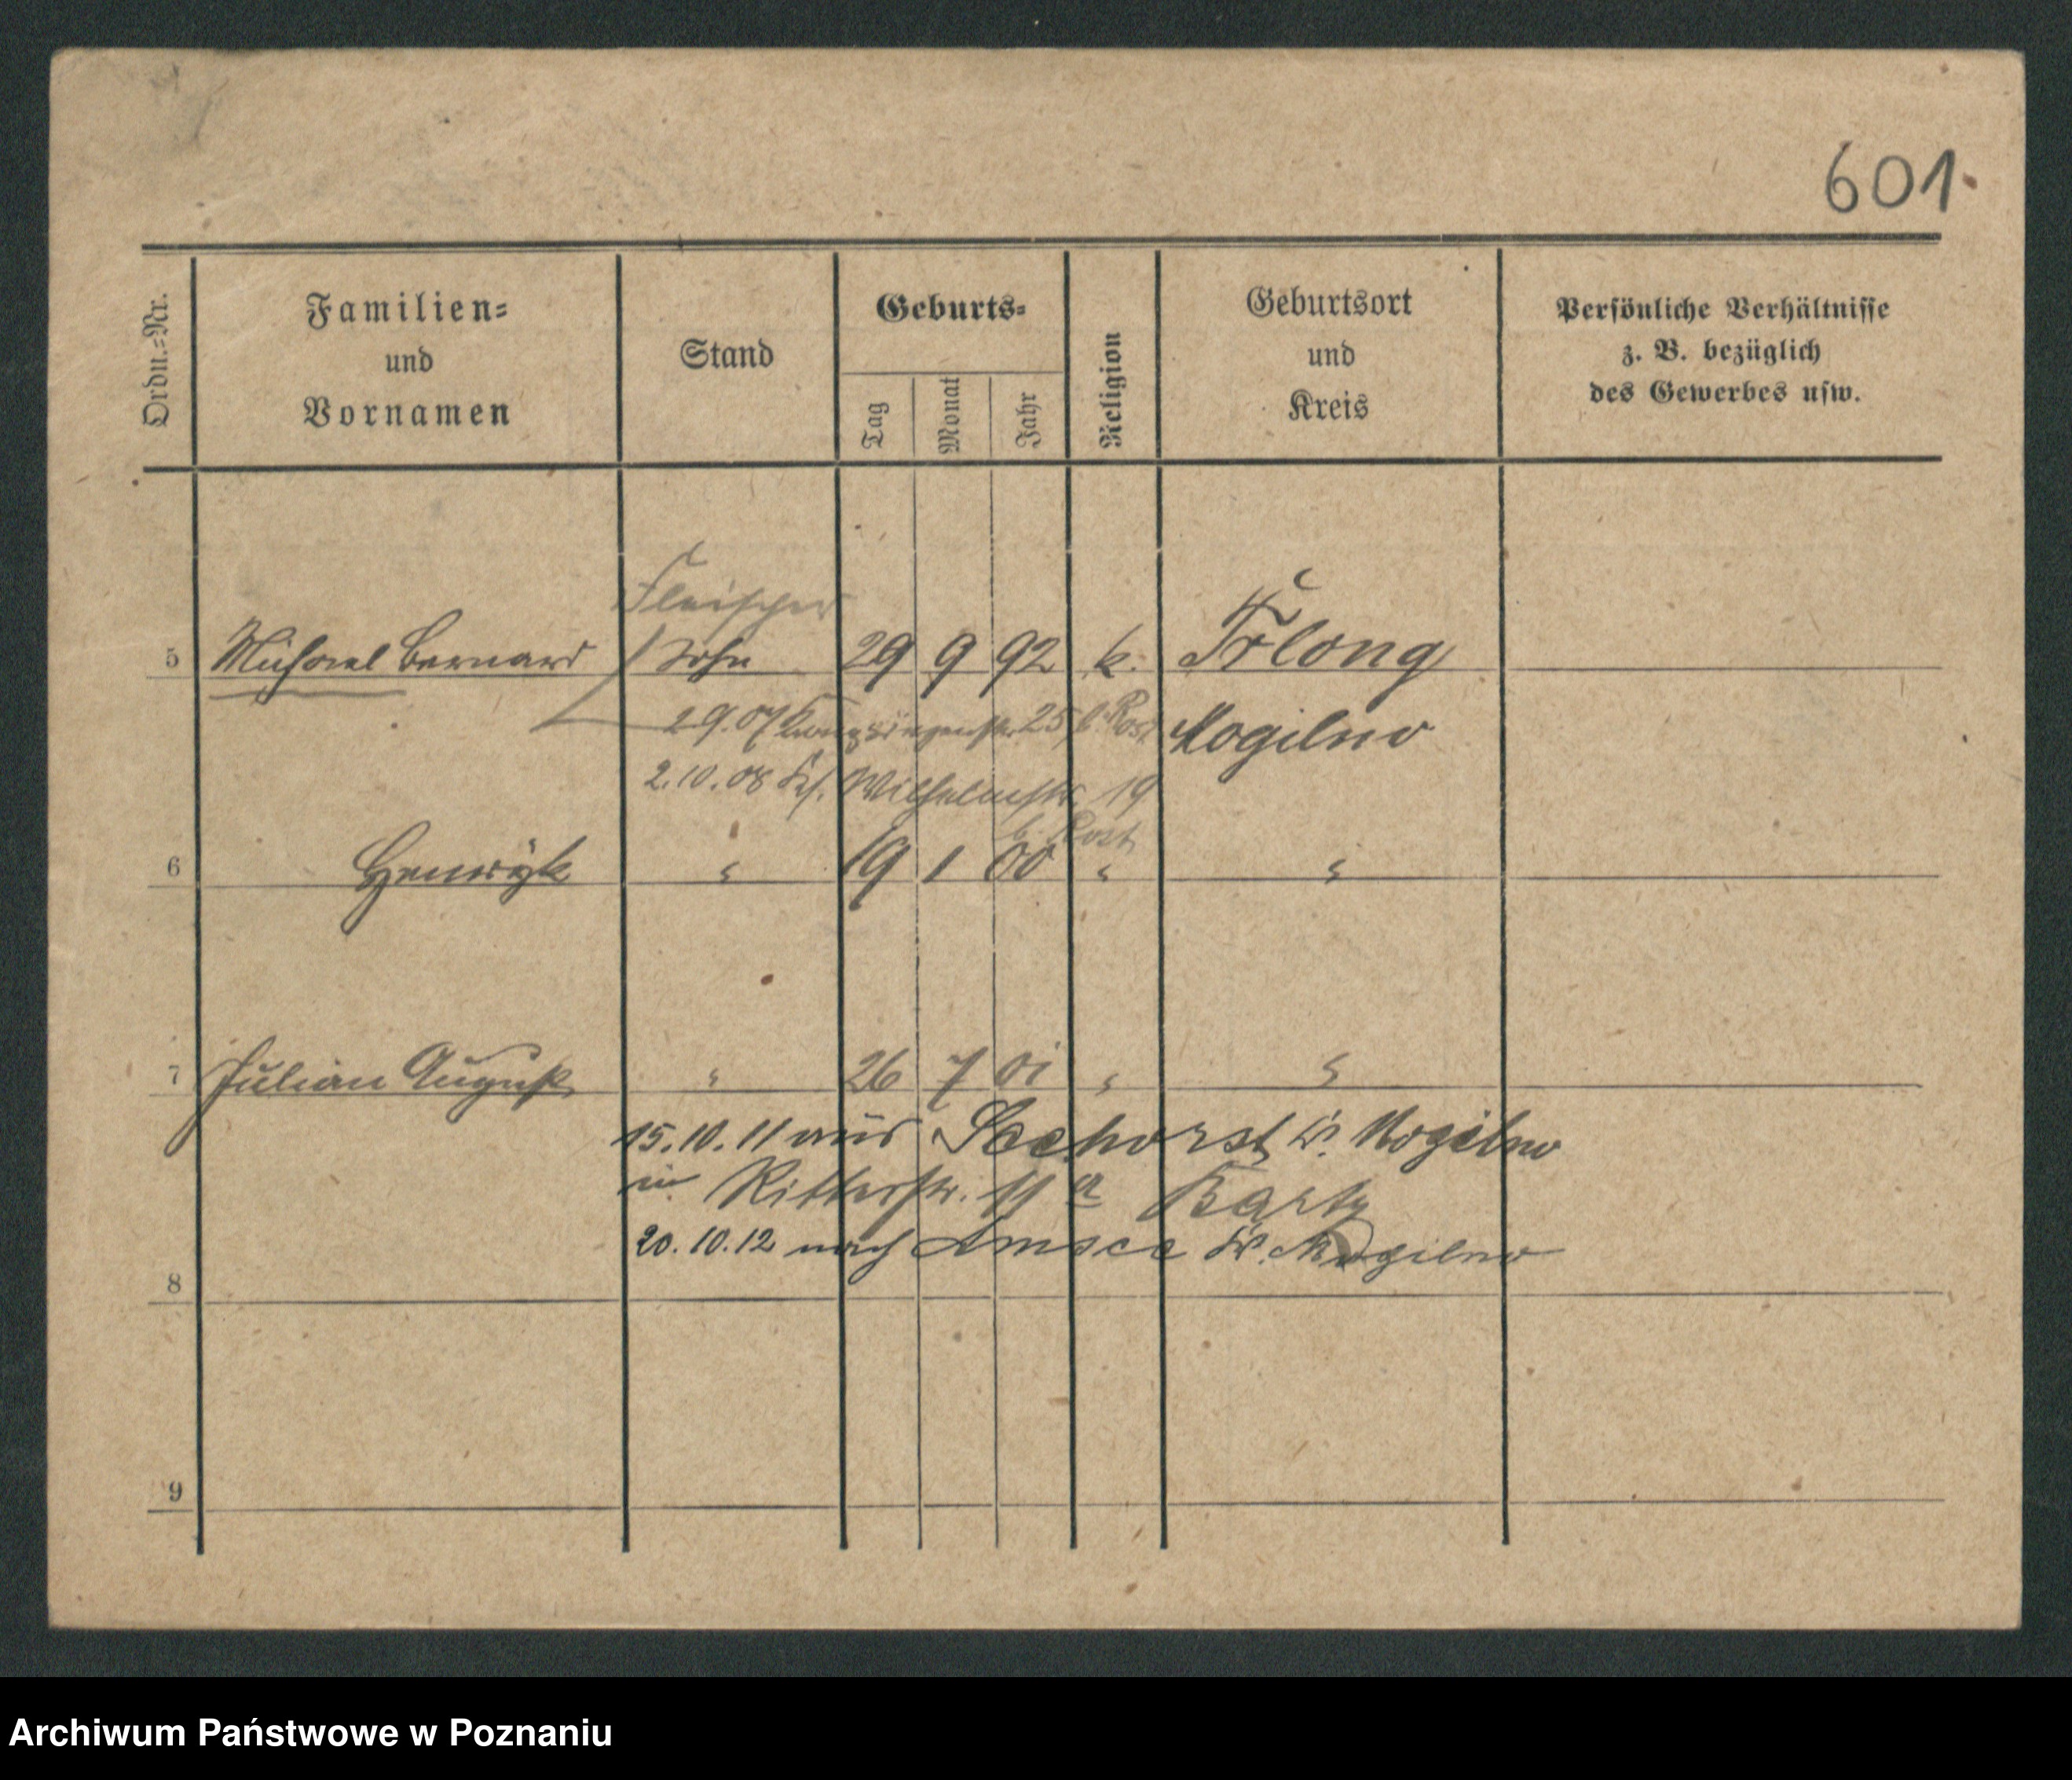 601.
Ordn.-Nr.
Familien-
und
Vornamen
Stand
Geburts-
Tag
Monat
Jahr
Religion
Geburtsort
und
Kreis
Persönliche Verhältnisse
z. B. bezüglich
des Gewerbes usw.
Fleischer
5 Michael Bernard Sohn 29 9 92 k. Trlong
29.07 25 b. Rost Mogilno
2.10.08 Wilhelmstr. 19
b. Rost
6 Henryk " 19 1 00 " "
7 Julian August " 26 7 01 " "
15.10.11 aus Seehorst Kr. Mogilno
in Ritterstr. 11a Bartz
20.10.12 nach Amsee Kr. Mogilno
8
9
Archiwum Państwowe w Poznaniu